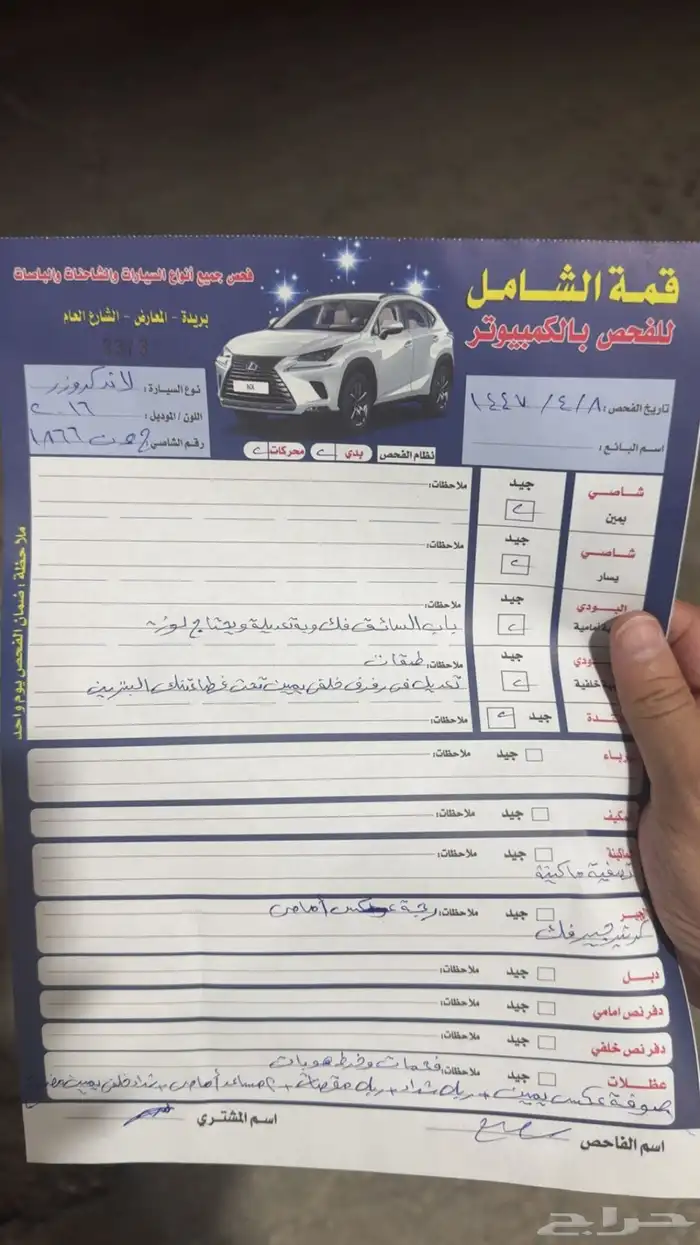 قمة الشامل
للفحص بالكمبيوتر
فحص جميع أنواع السيارات والشاحنات والباصات
بريدة - المعارض - الشارع العام
تاريخ الفحص: ١٤٤٧/٤/٨
اسم البائع:
نوع السيارة: لاندكروزر
اللون / الموديل: ٢٠١٦
رقم الشاصي
NX
نظام الفحص بدي محركات
شاصي يمين جيد ملاحظات:
شاصي يسار جيد ملاحظات:
البودي جيد ملاحظات:
باب السائق فك وبه تعديلة ويحتاج لوزن
جيد ملاحظات: طبقات
خلفية تعديل في رفرف خلفي يمين تحت غطاء تنك البنزين
جيد ملاحظات:
جيد ملاحظات:
جيد ملاحظات:
جيد ملاحظات:
تصفية ماكينة
جيد ملاحظات: رجة عكس أمامي
كرتير جير فك
دبل جيد ملاحظات:
دفرنص امامي جيد ملاحظات:
دفرنص خلفي جيد ملاحظات:
عظلات جيد ملاحظات: فحمات وخرط هوبات
صوفة عكس يمين + ربل شداد + ربل مقصات + مساعد أمامي + شداد خلفي يمين
اسم الفاحص
اسم المشتري
ملاحظة : ضمان الفحص يوم واحد
حراج